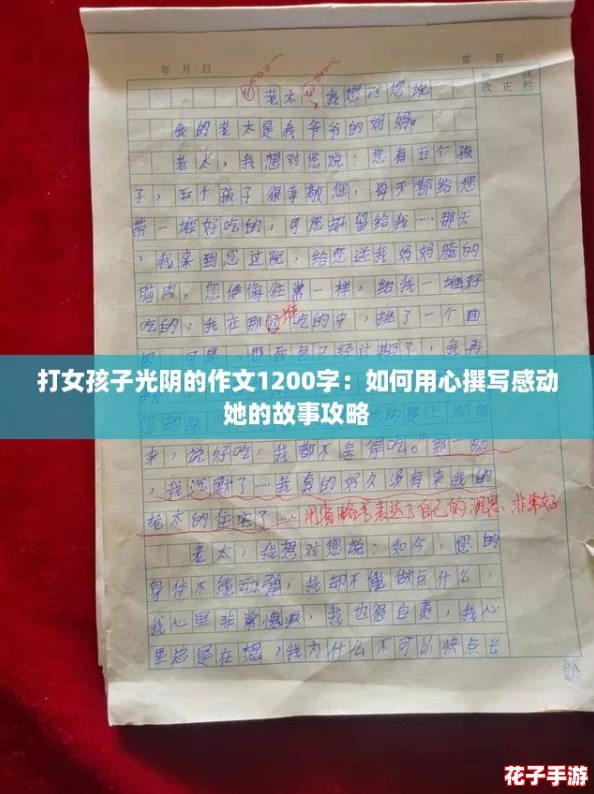 年 月 日
第 页
老太，我想对您说
我的老太是我爷爷的妈妈。
老太，我想对您说：您有五个孩
子，五个孩子很孝敬您，每天都给您
带一堆好吃的，可您都留给我……那天
，我来到您这呢，给您送我妈妈腌的
腊肉，您便像往常一样，给我一堆好
吃的，我在那堆吃的中，挑了一个
打女孩子光阴的作文1200字：如何用心撰写感动
她的故事攻略
来，说好吃，我都不舍得吃。那一刻
，我沉默了…我真的好久没有来我的
老太的住宅了……用省略号表达了自己的沉思，非常好
老太，我想对您说：如今，您的
身体不能动弹，我却不懂做点什么，
我心里非常愧疚，我也很自责，我心
里总是在想，我为什么不可以快点长
花子手游